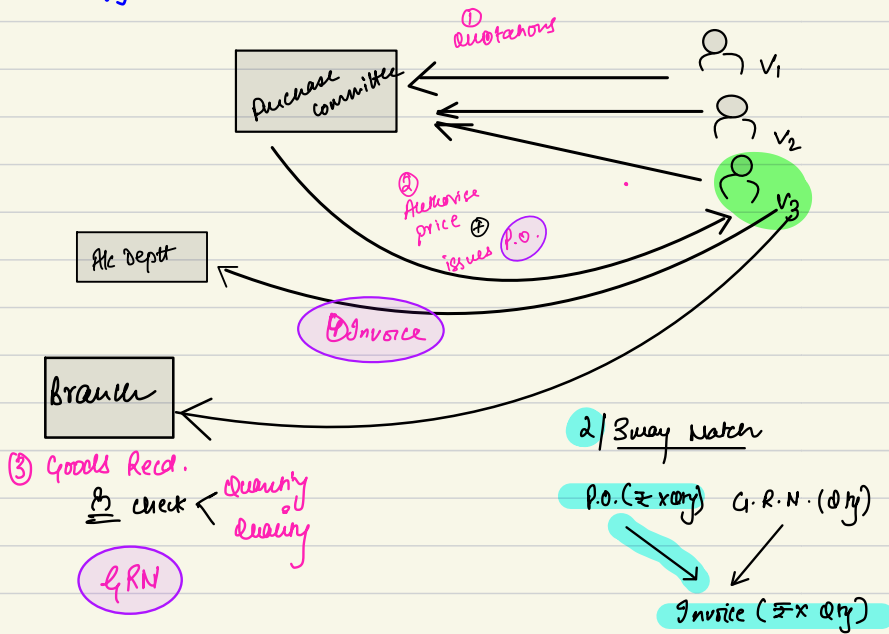 ① Quotations
Purchase
committee
V₁
V₂
V₃
② Authorise
price &
issues P.O.
A/c Deptt
④ Invoice
Branch
③ Goods Recd.
check < Quantity
Quality
GRN
2/3way Match
P.O. (₹ x Qty) G.R.N. (Qty)
Invoice (₹ x Qty)